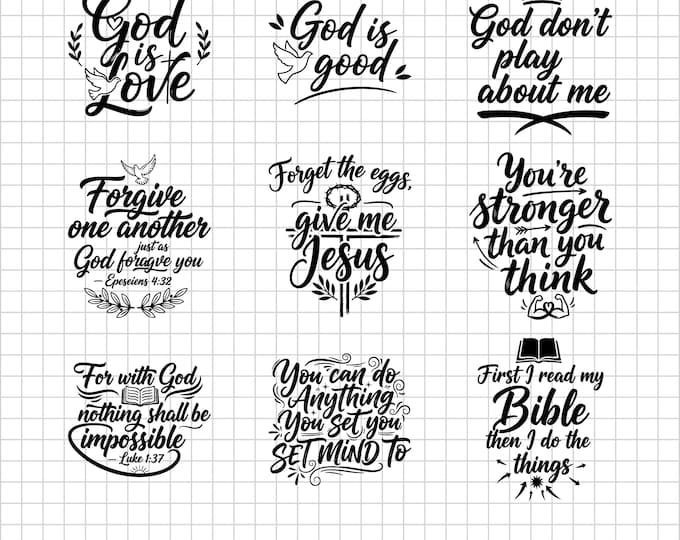 God
is
Love
God is
good
God don't
play
about me
Forgive
one another
just as
God foragve you
— Epeseiens 4:32
Forget the eggs,
give me
Jesus
You're
stronger
than you
think
For with God
nothing shall be
impossible
— Luke 1:37
You can do
Anything
You set you
SET MiND TO
First I read my
Bible
then I do the
things